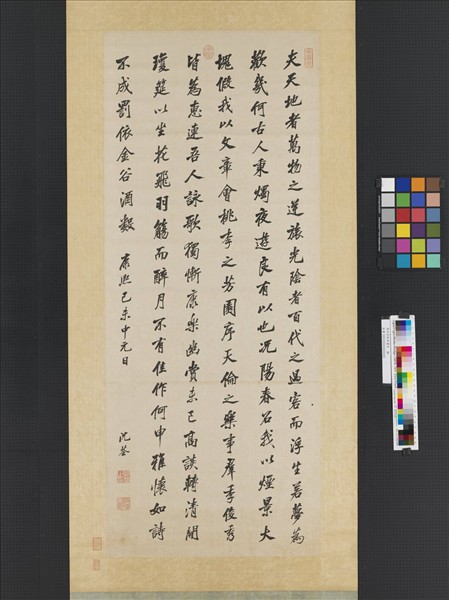 夫天地者萬物之逆旅光陰者百代之過客而浮生若夢為
歡幾何古人秉燭夜遊良有以也況陽春召我以煙景大
塊假我以文章會桃李之芳園序天倫之樂事羣季俊秀
皆為惠連吾人詠歌獨慚康樂幽賞未已高談轉清開
瓊筵以坐花飛羽觴而醉月不有佳作何申雅懷如詩
不成罰依金谷酒數 康熙己未中元日 沈荃